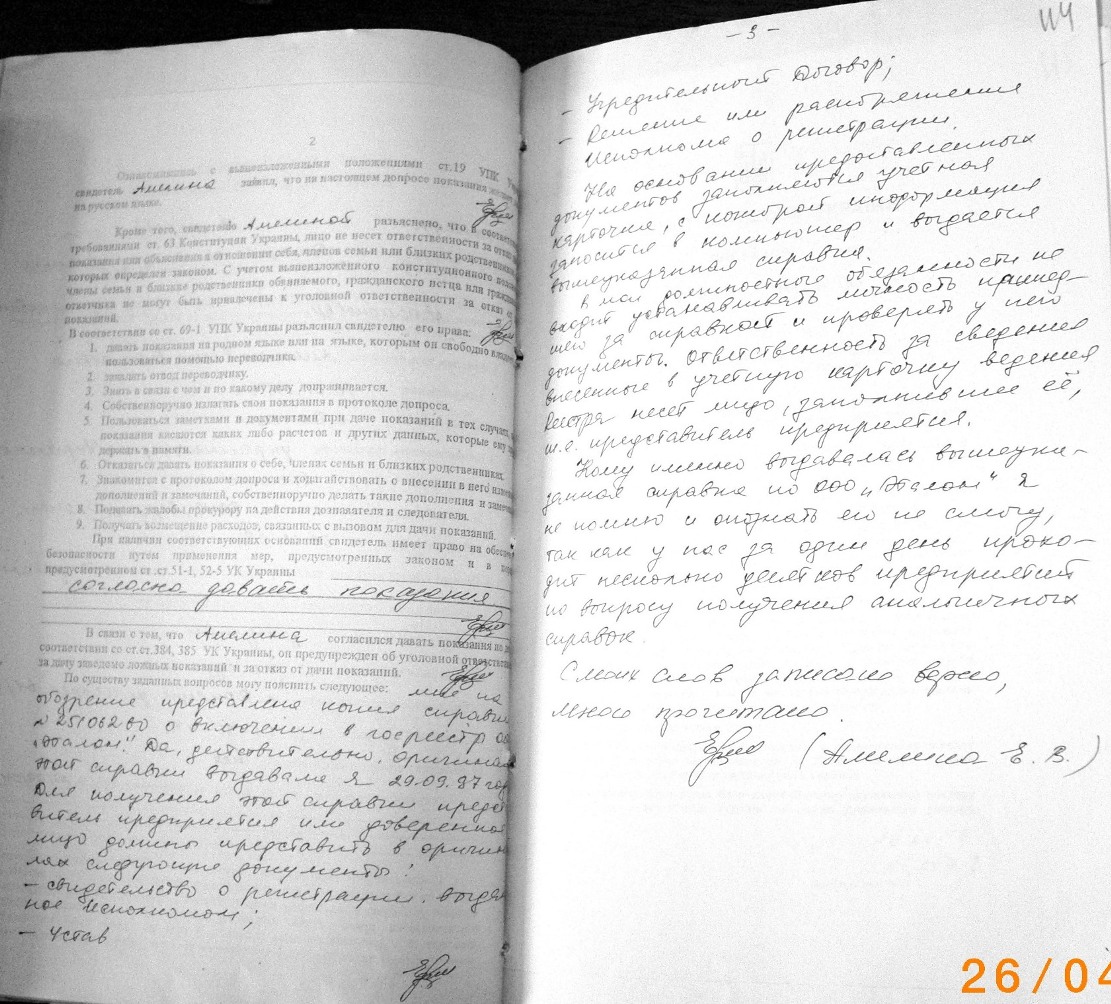 2
Ознакомившись с вышеизложенными положениями ст.19 УПК
свидетель Амелина заявил, что на настоящем допросе показания
на русском языке.
Кроме того, свидетелю Амелиной разъяснено, что в
требованиями ст. 63 Конституции Украины, лицо не несет ответственности за отказ
показания или объяснения в отношении себя, членов семьи или близких
которых определен законом. С учетом вышеизложенного конституционного
члены семьи и близкие родственники обвиняемого, гражданского истца или
ответчика не могут быть привлечены к уголовной ответственности за отказ
показаний.
В соответствии со ст. 69-1 УПК Украины разъяснил свидетелю его права:
1. давать показания на родном языке или на языке, которым он свободно
пользоваться помощью переводчика.
2. заявлять отвод переводчику.
3. Знать в связи с чем и по какому делу допрашивается.
4. Собственноручно излагать свои показания в протоколе допроса.
5. Пользоваться заметками и документами при даче показаний в тех
показания касаются каких либо расчетов и других данных, которые ему
держать в памяти.
6. Отказаться давать показания о себе, членах семьи и близких родственниках.
7. Знакомится с протоколом допроса и ходатайствовать о внесении в него
дополнений и замечаний, собственноручно делать такие дополнения и
8. Подавать жалобы прокурору на действия дознавателя и следователя.
9. Получать возмещение расходов, связанных с вызовом для дачи показаний.
При наличии соответствующих оснований свидетель имеет право на
безопасности путем применения мер, предусмотренных законом и в
предусмотренном ст.ст.51-1, 52-5 УК Украины
согласна давать показания
В связи с тем, что Амелина согласился давать показания по
соответствии со ст.ст.384, 385 УК Украины, он предупрежден об уголовной
за дачу заведомо ложных показаний и за отказ от дачи показаний.
По существу заданных вопросов могу пояснить следующее: мне на
обозрение представлена копия справки
о включении в госреестр
"Эталон". Да, действительно, оригинал
этой справки выдавала я 29.09.97
Для получения этой справки
витель предприятия или
лицо должны представить в
лах следующие документы:
- свидетельство о регистрации,
ное Исполкомом;
- Устав
-3-
114
- Учредительный Договор;
- Решение или распоряжение
Исполкома о регистрации.
На основании предоставленных
документов заполняется учетная
карточка, с которой информация
заносится в компьютер и выдается
вышеуказанная справка.
В мои должностные обязанности не
входит устанавливать личность пришед-
шего за справкой и проверять у него
документы. Ответственность за сведения
внесенные в учетную карточку ведения
Реестра несет лицо, заполнившее её,
т.е. представитель предприятия.
Кому именно выдавалась вышеука-
занная справка по ООО "Эталон" я
не помню и опознать его не смогу,
так как у нас за один день прохо-
дит несколько десятков предприятий
по вопросу получения аналогичных
справок.
С моих слов записано верно,
мною прочитано.
(Амелина Е. В.)
26/04